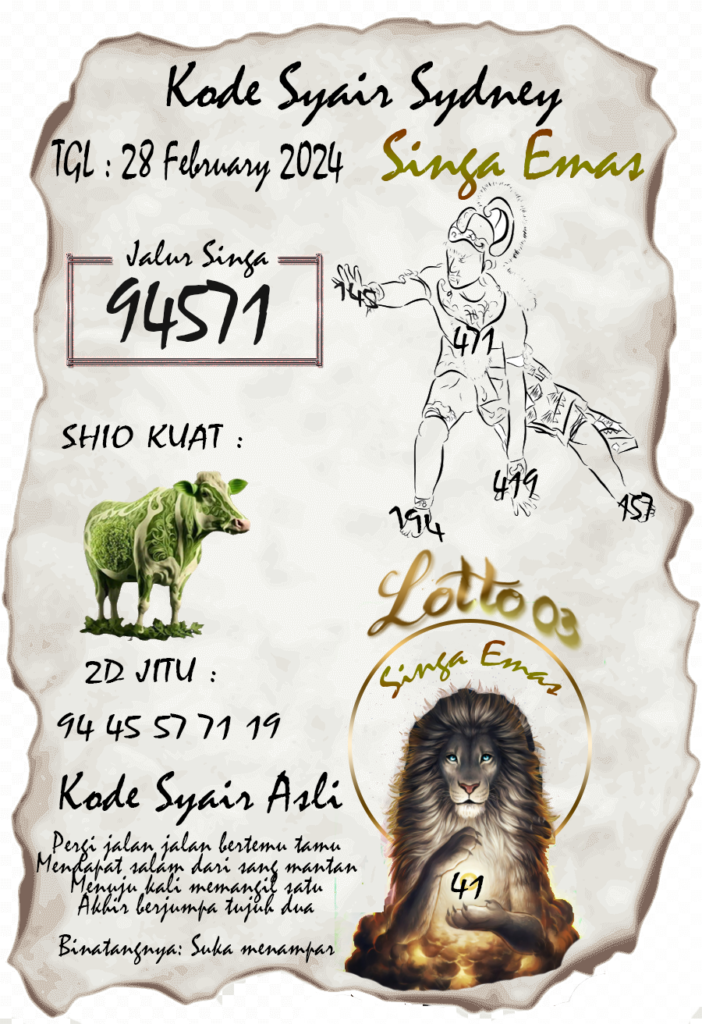 Kode Syair Sydney
TGL : 28 February 2024
Singa Emas
Jalur Singa
94571
145
471
419
157
194
SHIO KUAT :
Lotto 03
Singa Emas
2D JITU :
94 45 57 71 19
Kode Syair Asli
Pergi jalan jalan bertemu tamu
Mendapat salam dari sang mantan
Menuju kali memangil satu
Akhir berjumpa tujuh dua
Binatangnya: Suka menampar
41